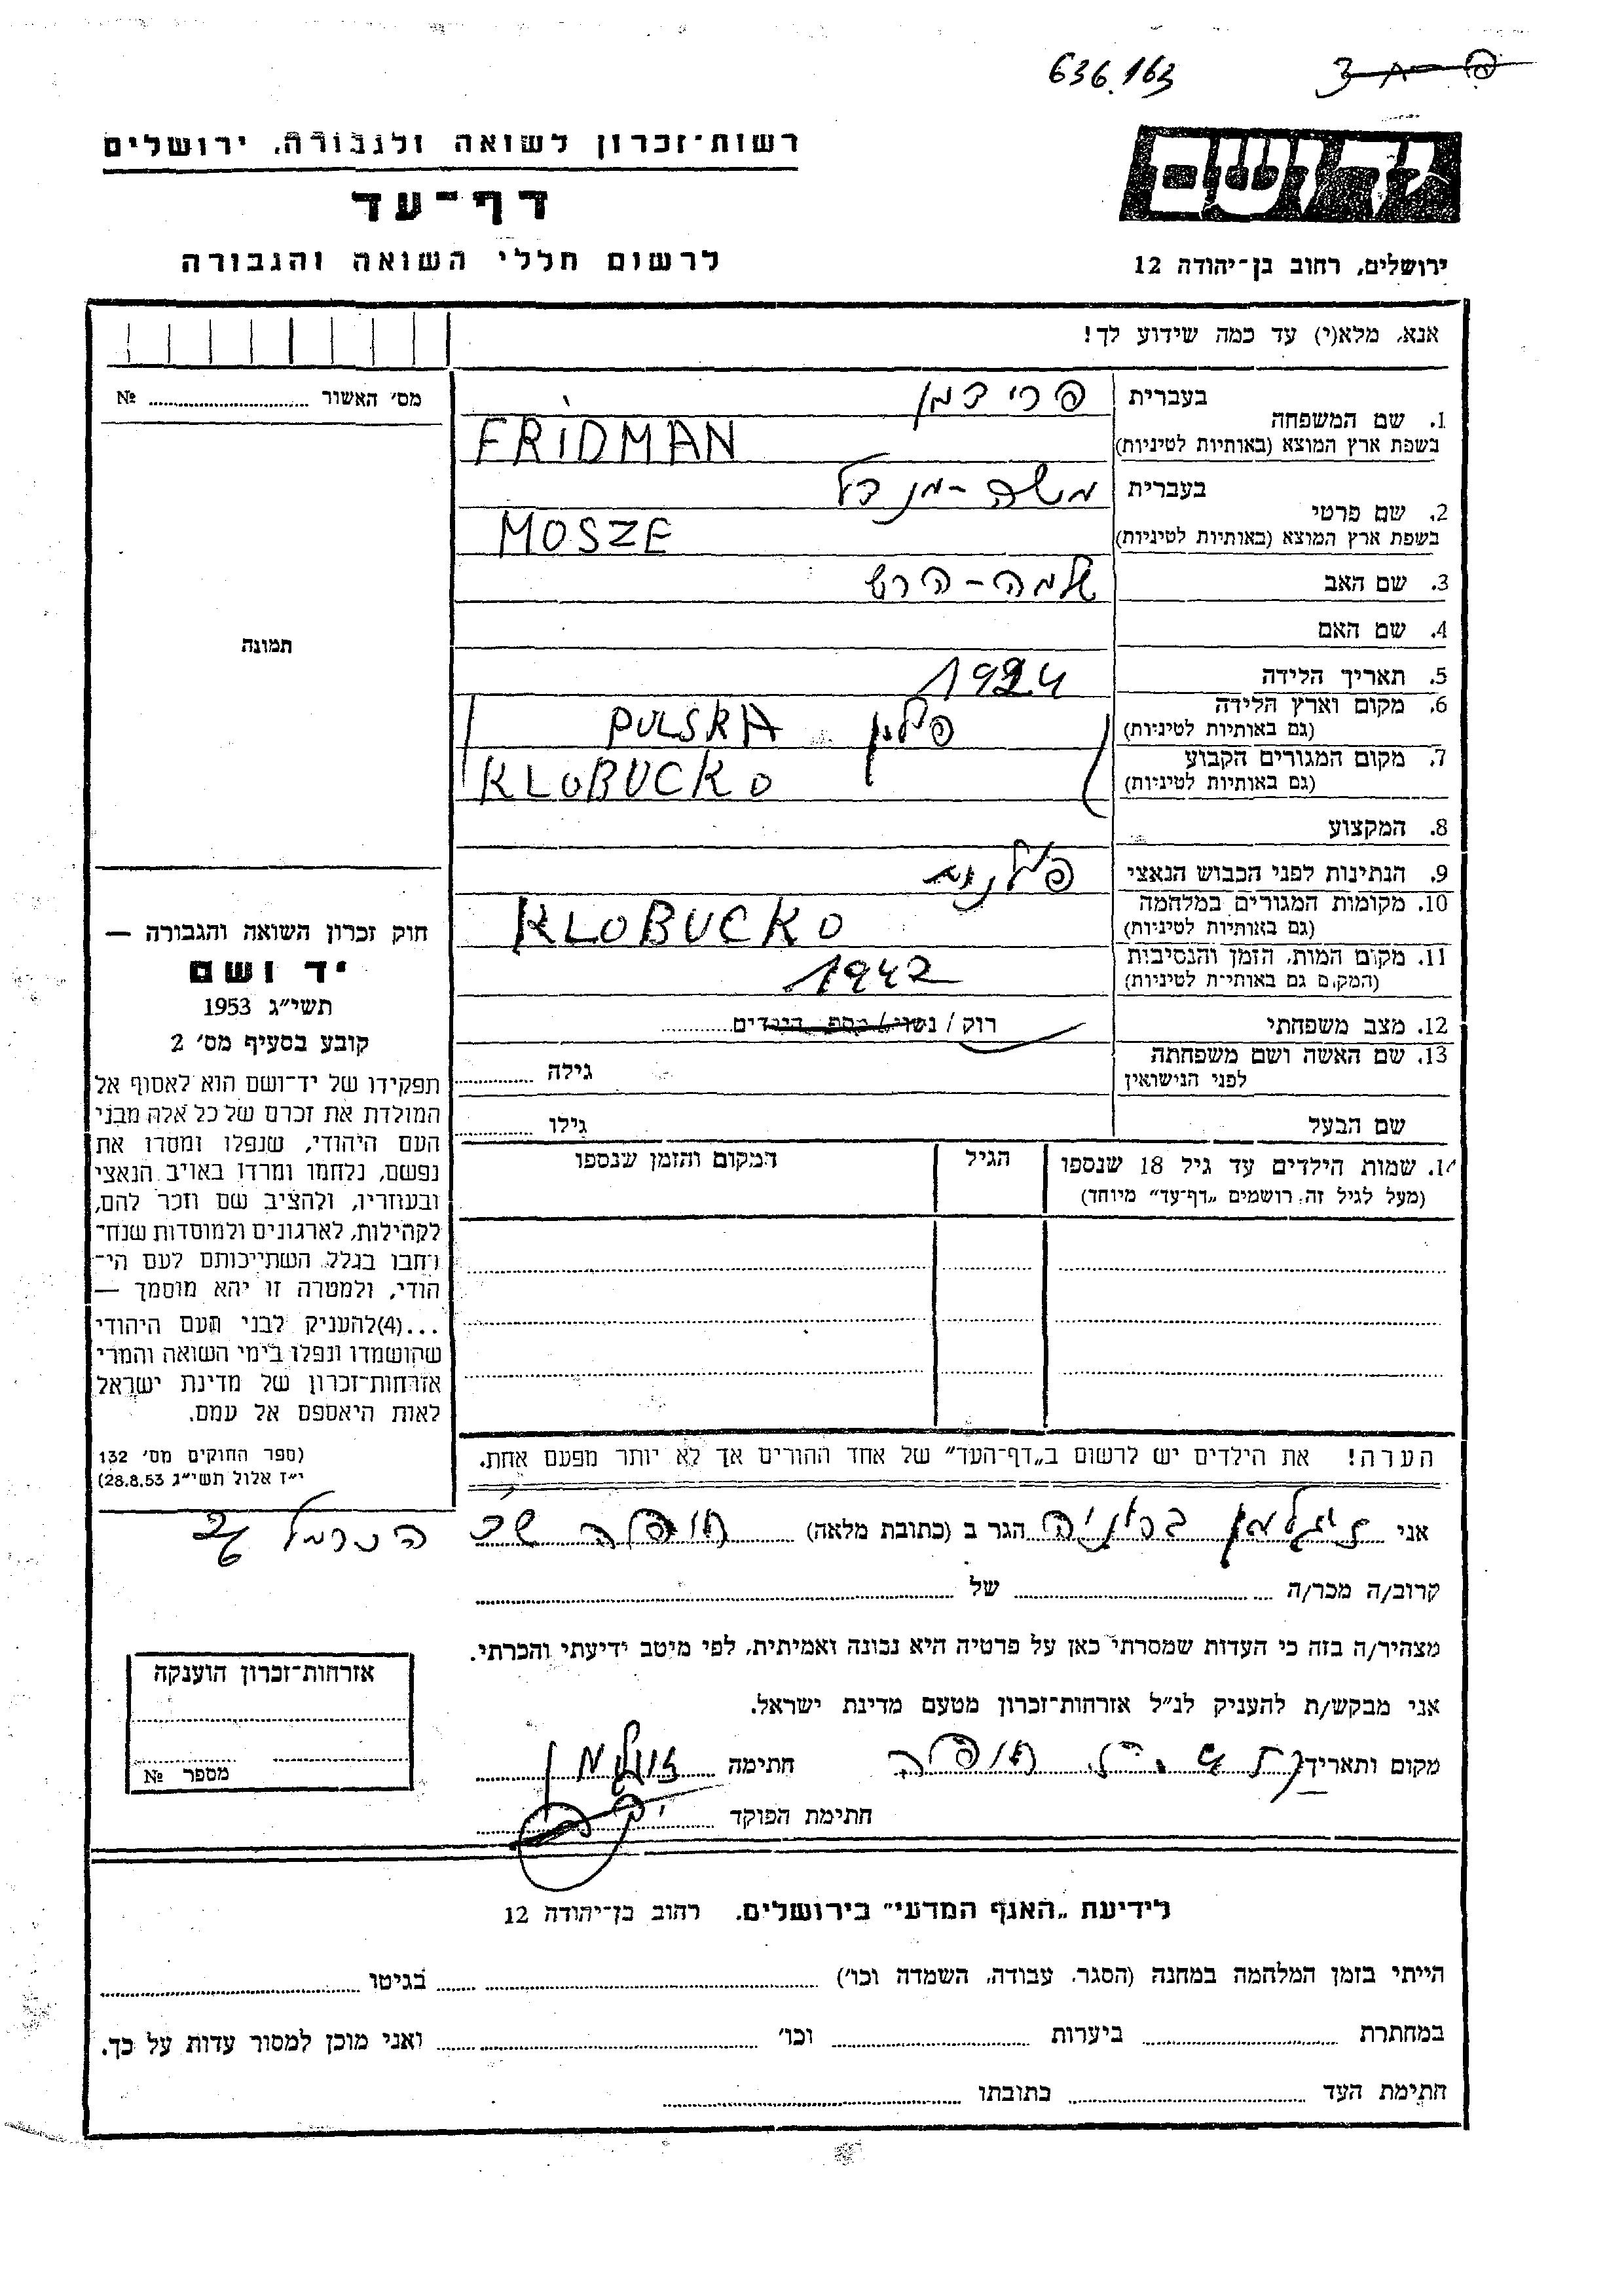 636.163
רשות־זכרון לשואה ולגבורה, ירושלים
דף־עד
לרשום חללי השואה והגבורה
יד ושם
ירושלים, רחוב בן־יהודה 12
אנא, מלא(י) עד כמה שידוע לך!
מס׳ האשור № 
1. שם המשפחה בעברית פרידמן
בשפת ארץ המוצא (באותיות לטיניות) FRIDMAN
2. שם פרטי בעברית משה-מנדל
בשפת ארץ המוצא (באותיות לטיניות) MOSZE
3. שם האב שלמה-הרש
4. שם האם
תמונה
5. תאריך הלידה 1924
6. מקום וארץ הלידה פולין PULSKA
(גם באותיות לטיניות)
7. מקום המגורים הקבוע KLOBUCKO
(גם באותיות לטיניות)
8. המקצוע
9. הנתינות לפני הכבוש הנאצי
10. מקומות המגורים במלחמה KLOBUCKO
(גם באותיות לטיניות)
11. מקום המות, הזמן והנסיבות 1942
(המקום גם באותיות לטיניות)
12. מצב משפחתי רוק / נשוי / מספר הילדים
13. שם האשה ושם משפחתה גילה
לפני הנישואין
שם הבעל גילו
14. שמות הילדים עד גיל 18 שנספו הגיל המקום והזמן שנספו
(מעל לגיל זה, רושמים „דף־עד” מיוחד)
הערה! את הילדים יש לרשום ב„דף־העד” של אחד ההורים אך לא יותר מפעם אחת.
חוק זכרון השואה והגבורה —
יד ושם
תשי״ג 1953
קובע בסעיף מס׳ 2
תפקידו של יד־ושם הוא לאסוף אל
המולדת את זכרם של כל אלה מבני
העם היהודי, שנפלו ומסרו את
נפשם, נלחמו ומרדו באויב הנאצי
ובעוזריו, ולהציב שם וזכר להם,
לקהילות, לארגונים ולמוסדות שנח־
רחבו בגלל השתייכותם לעם הי־
הודי, ולמטרה זו יהא מוסמך —
...(4)להעניק לבני העם היהודי
שהושמדו ונפלו בימי השואה והמרי
אזרחות־זכרון של מדינת ישראל
לאות היאספם אל עמם.
(ספר החוקים מס׳ 132
י״ז אלול תשי״ג 28.8.53)
אני זיגלמן ברוניה הגר ב (כתובת מלאה) חיפה
קרוב/ה מכר/ה של
מצהיר/ה בזה כי העדות שמסרתי כאן על פרטיה היא נכונה ואמיתית, לפי מיטב ידיעתי והכרתי.
אני מבקש/ת להעניק לנ״ל אזרחות־זכרון מטעם מדינת ישראל.
מקום ותאריך חיפה חתימה
חתימת הפוקד
אזרחות־זכרון הוענקה
מספר №
לידיעת „האגף המדעי” בירושלים. רחוב בן־יהודה 12
הייתי בזמן המלחמה במחנה (הסגר, עבודה, השמדה וכו׳) בגיטו
במחתרת ביערות וכו׳ ואני מוכן למסור עדות על כך.
חתימת העד כתובתו